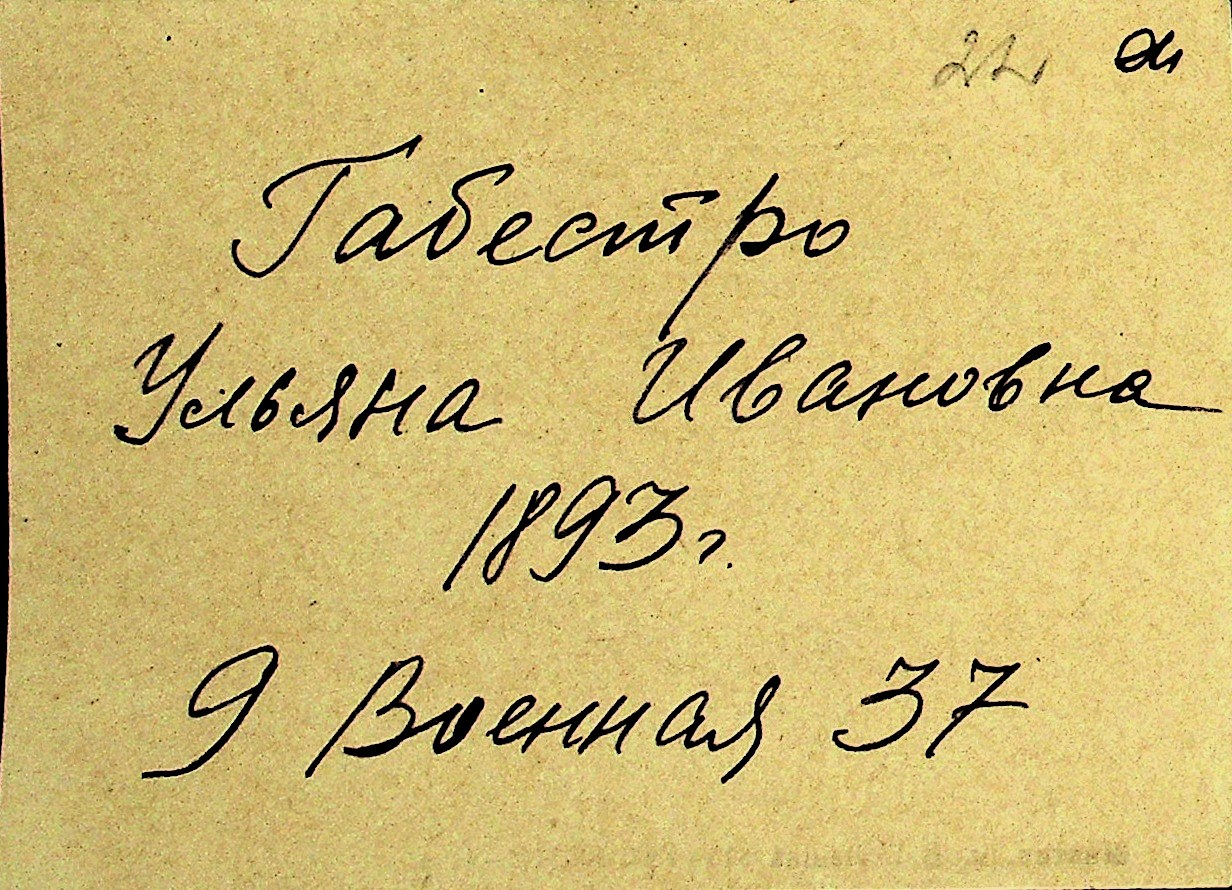 22
Габестро
Ульяна Ивановна
1893 г.
9 Военная 37